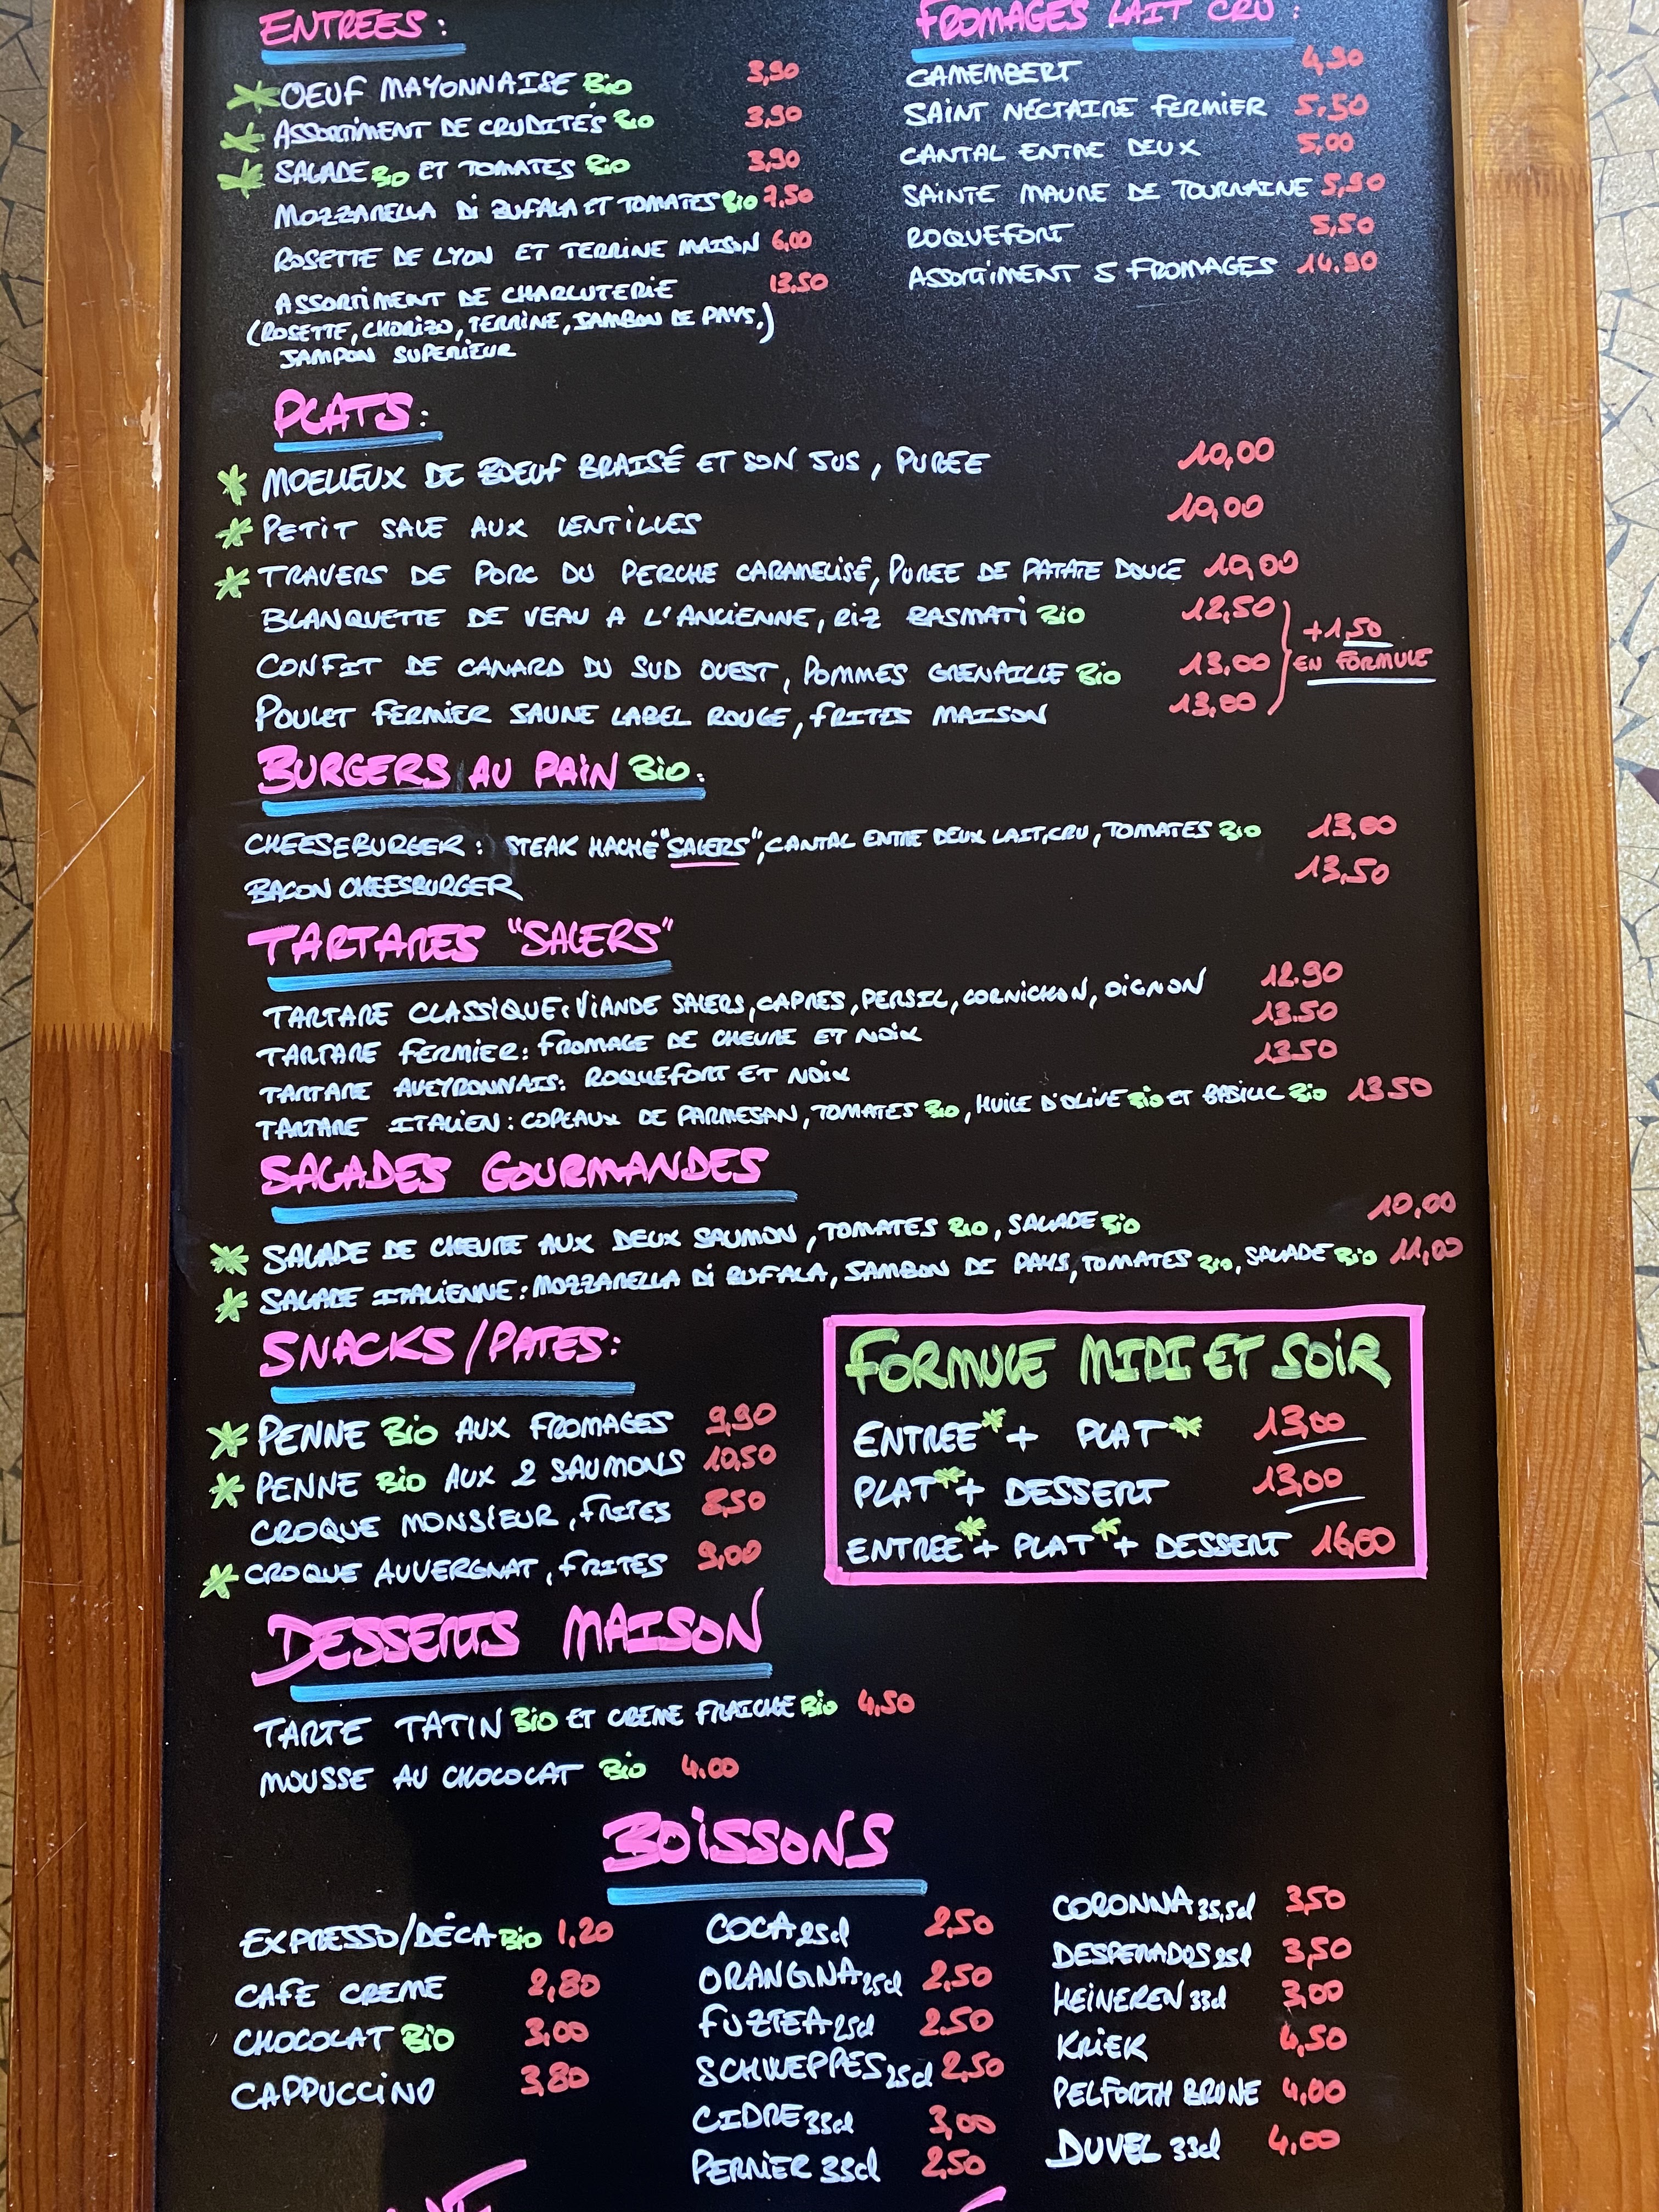 ENTREES :
* OEUF MAYONNAISE BiO 3,90
* ASSORTIMENT DE CRUDITÉS BiO 3,90
* SALADE BiO ET TOMATES BiO 3,90
MOZZARELLA Di BUFALA ET TOMATES BiO 7,50
ROSETTE DE LYON ET TERRINE MAISON 6,00
ASSORTIMENT DE CHARCUTERIE 13,50
(ROSETTE, CHORIZO, TERRINE, JAMBON DE PAYS,)
JAMPON SUPERIEUR
FROMAGES LAIT CRU :
CAMEMBERT 4,90
SAINT NECTAIRE FERMIER 5,50
CANTAL ENTRE DEUX 5,00
SAINTE MAURE DE TOURRAINE 5,90
ROQUEFORT 5,50
ASSORTIMENT 5 FROMAGES 14.90
PLATS :
* MOELLEUX DE BOEUF BRAISÉ ET SON JUS, PUREE 10,00
* PETIT SALE AUX LENTILLES 10,00
* TRAVERS DE PORC DU PERCHE CARAMELISÉ, PUREE DE PATATE DOUCE 10,00
BLANQUETTE DE VEAU A L'ANCIENNE, RIZ BASMATI BiO 12,50
CONFIT DE CANARD DU SUD OUEST, POMMES GRENAILLE BiO 13,00
POULET FERMIER JAUNE LABEL ROUGE, FRITES MAISON 13,00
+1,50
EN FORMULE
BURGERS AU PAIN BiO :
CHEESEBURGER : STEAK HACHÉ "SALERS", CANTAL ENTRE DEUX LAIT, CRU, TOMATES BiO 13,00
BACON CHEESBURGER 13,50
TARTARES "SALERS"
TARTARE CLASSIQUE : VIANDE SALERS, CAPRES, PERSIL, CORNICHON, OIGNON 12.90
TARTARE FERMIER : FROMAGE DE CHEVRE ET NOIX 13.50
TARTARE AVEYRONNAIS : ROQUEFORT ET NOIX 13.50
TARTARE ITALIEN : COPEAUX DE PARMESAN, TOMATES BiO, HUILE D'OLIVE BiO ET BASILIC BiO 13.50
SALADES GOURMANDES
* SALADE DE CHEVRE AUX DEUX SAUMON, TOMATES BiO, SALADE BiO 10,00
* SALADE ITALIENNE : MOZZARELLA Di BUFALA, JAMBON DE PAYS, TOMATES BiO, SALADE BiO 11,00
SNACKS / PATES :
* PENNE BiO AUX FROMAGES 9,90
* PENNE BiO AUX 2 SAUMONS 10,50
CROQUE MONSIEUR, FRITES 8,50
* CROQUE AUVERGNAT, FRITES 9,00
FORMULE MIDI ET SOIR
ENTREE* + PLAT* 13,00
PLAT* + DESSERT 13,00
ENTREE* + PLAT* + DESSERT 16,00
DESSERTS MAISON
TARTE TATIN BiO ET CREME FRAICHE BiO 4,50
MOUSSE AU CHOCOLAT BiO 4.00
BOISSONS
EXPRESSO/DÉCA BiO 1,20
CAFE CREME 2,80
CHOCOLAT BiO 3,00
CAPPUCCINO 3,80
COCA 25cl 2,50
ORANGINA 25cl 2,50
FUZTEA 25cl 2.50
SCHWEPPES 25cl 2,50
CIDRE 33cl 3,00
PERRIER 33cl 2,50
CORONNA 35,5cl 3,50
DESPERADOS 25cl 3,50
HEINEKEN 33cl 3,00
KRIEK 4,50
PELFORTH BRUNE 4,00
DUVEL 33cl 4,00